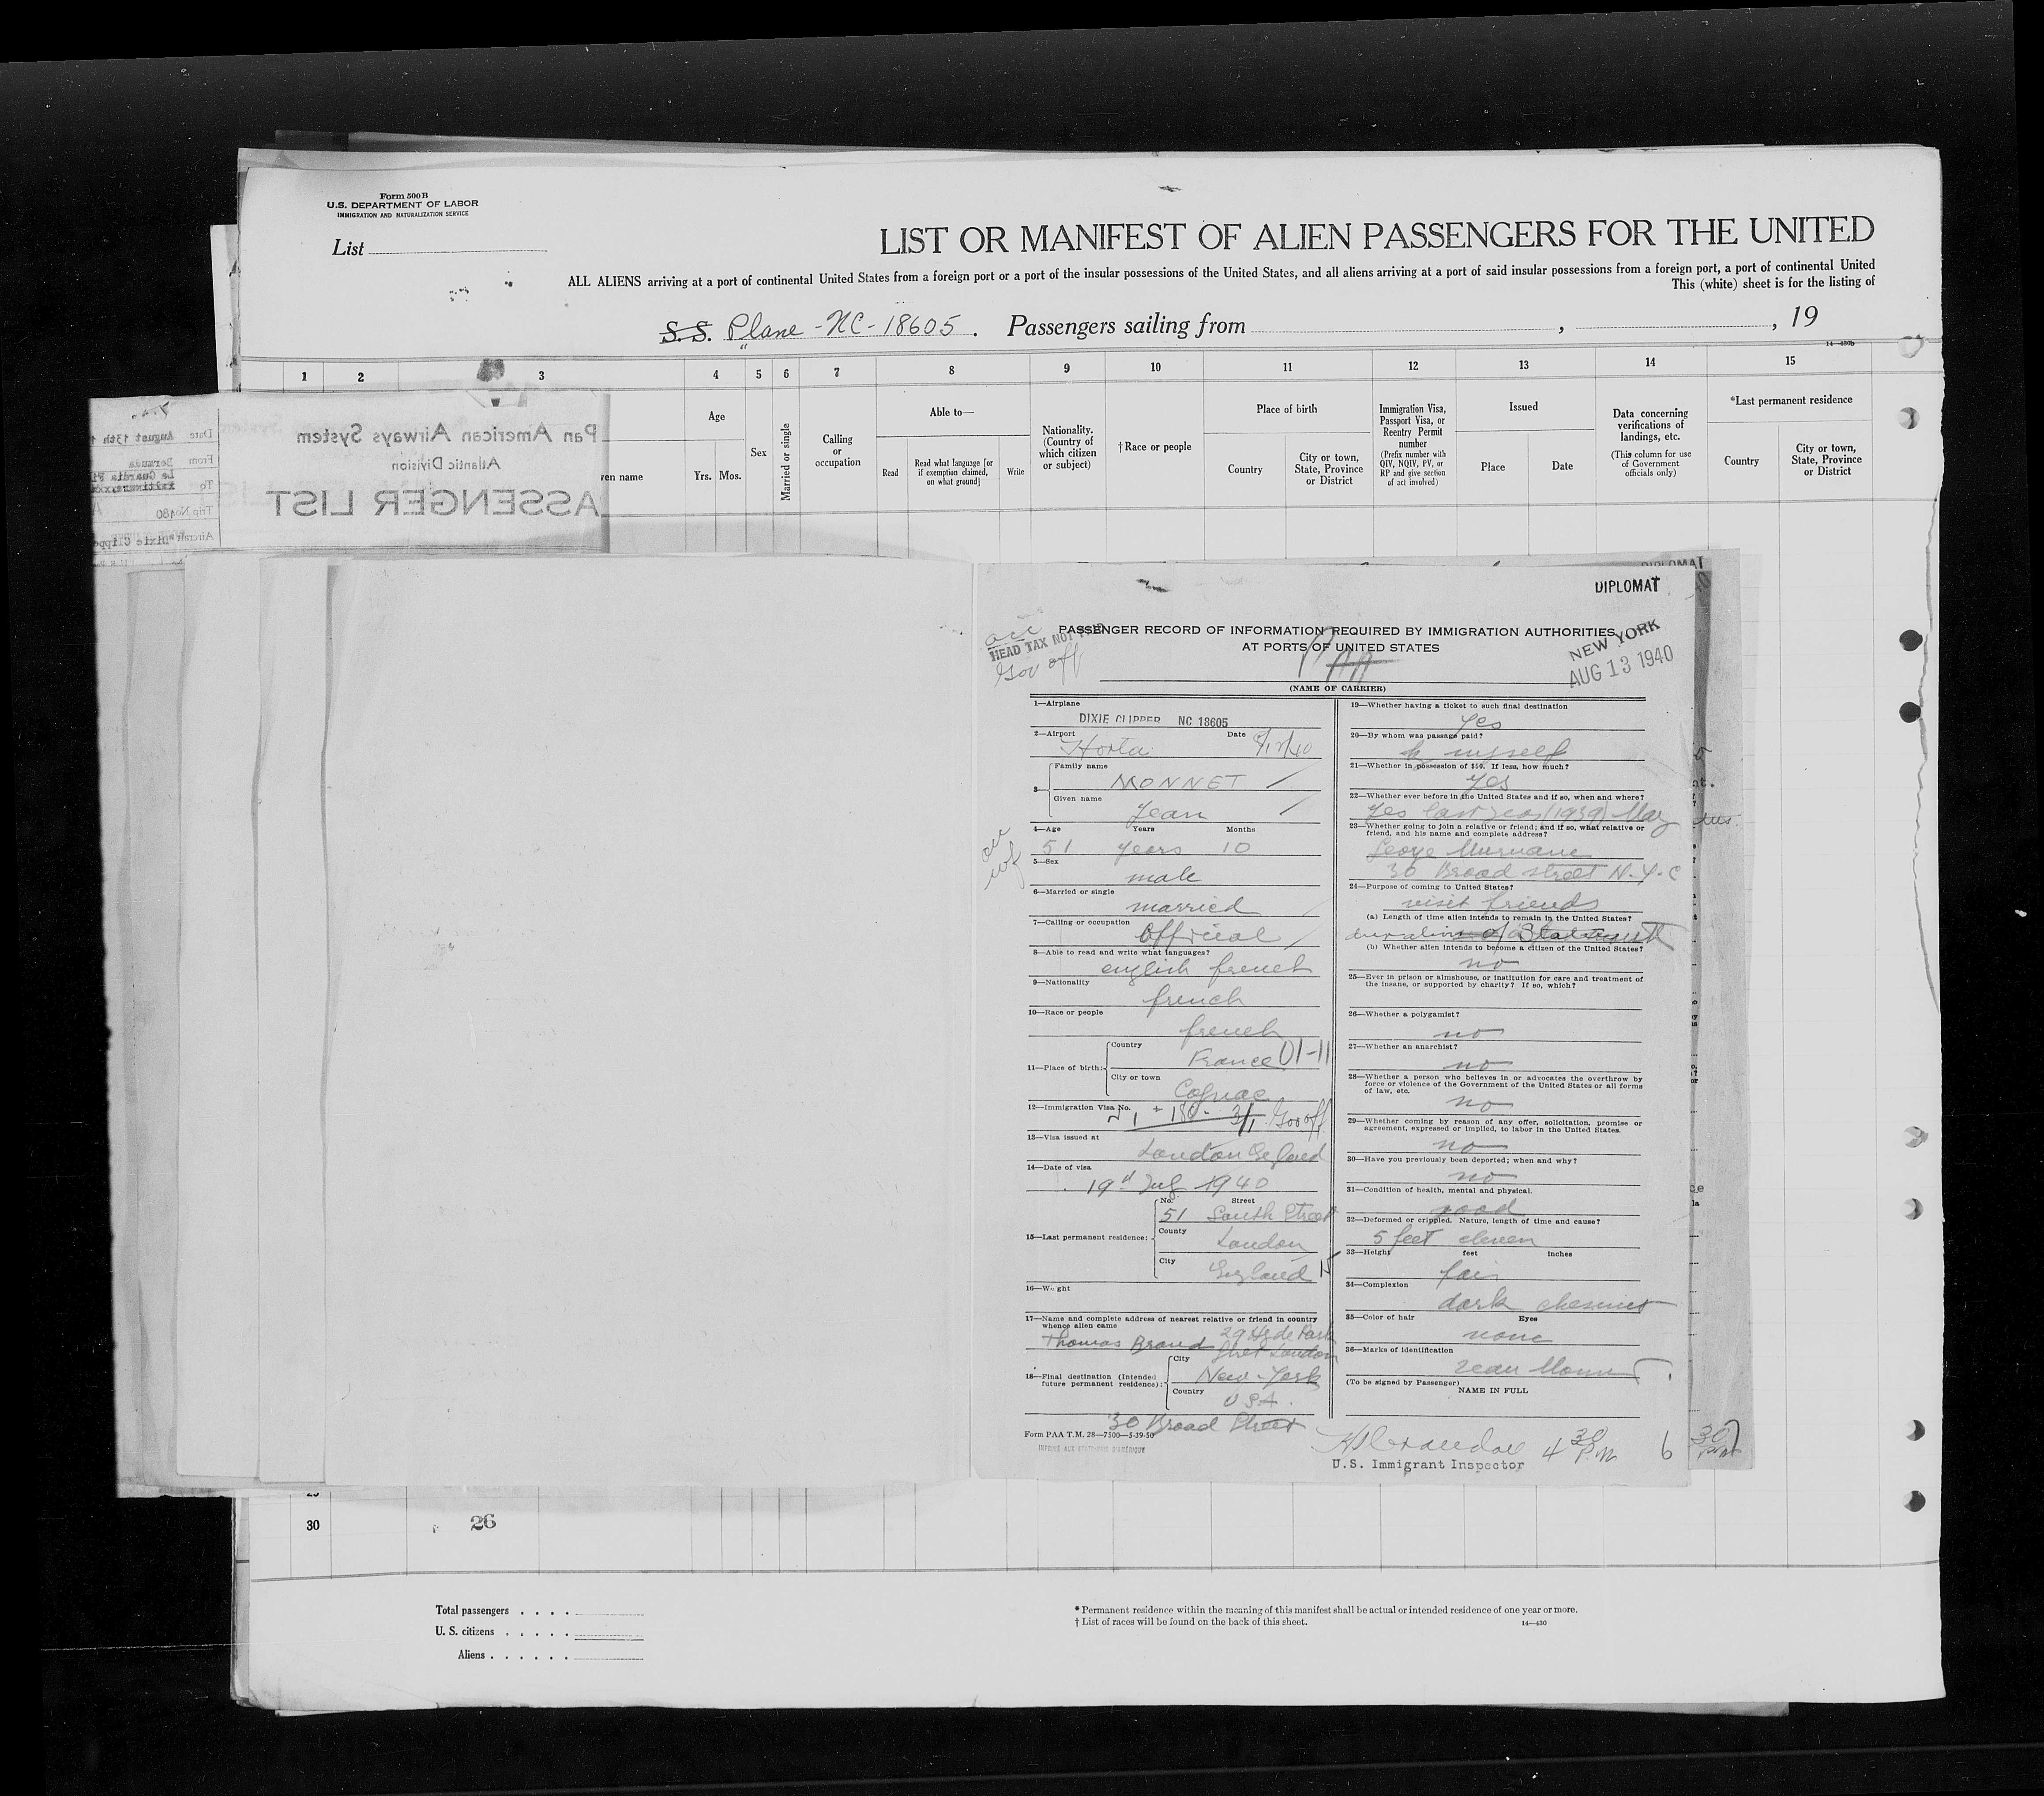 Form 500 B
U.S. DEPARTMENT OF LABOR
IMMIGRATION AND NATURALIZATION SERVICE
List
LIST OR MANIFEST OF ALIEN PASSENGERS FOR THE UNITED
ALL ALIENS arriving at a port of continental United States from a foreign port or a port of the insular possessions of the United States, and all aliens arriving at a port of said insular possessions from a foreign port, a port of continental United
This (white) sheet is for the listing of
S. S. Plane - NC - 18605 . Passengers sailing from , , 19
14—430b
1 2 3 4 5 6 7 8 9 10 11 12 13 14 15
ven name
Age
Yrs. Mos.
Sex
Married or single
Calling
or
occupation
Able to—
Read
Read what language [or
if exemption claimed,
on what ground]
Write
Nationality.
(Country of
which citizen
or subject)
†Race or people
Place of birth
Country
City or town,
State, Province
or District
Immigration Visa,
Passport Visa, or
Reentry Permit
number
(Prefix number with
QIV, NQIV, PV, or
RP and give section
of act involved)
Issued
Place
Date
Data concerning
verifications of
landings, etc.
(This column for use
of Government
officials only)
*Last permanent residence
Country
City or town,
State, Province
or District
Pan American Airways System
Atlantic Division
ASSENGER LIST
Date August 13th
From Bermuda
To La Guardia
Trip No 480
Aircraft Dixie Clippe
DIPLOMAT
DIPLOMAT
PASSENGER RECORD OF INFORMATION REQUIRED BY IMMIGRATION AUTHORITIES
AT PORTS OF UNITED STATES
HEAD TAX NOT PAID
Gov off
PAA
NEW YORK
AUG 13 1940
(NAME OF CARRIER)
1—Airplane
DIXIE CLIPPER NC 18605
2—Airport Date
Horta
Family name
MONNET
3
Given name
Jean
4—Age Years Months
51 years 10
5—Sex
male
6—Married or single
married
7—Calling or occupation
Official
8—Able to read and write what languages?
english french
9—Nationality
french
10—Race or people
french
11—Place of birth:
Country
France 01-11
City or town
Cognac
12—Immigration Visa No.
3/1 Gov off
13—Visa issued at
London England
14—Date of visa
19 July 1940
15—Last permanent residence:
No. Street
51 South Street
County
London
City
England 15
16—Weight
17—Name and complete address of nearest relative or friend in country
whence alien came
Thomas Brand 29 Hyde Park
London
18—Final destination (Intended
future permanent residence):
City
New-York
Country
USA.
30 Broad Street
Form PAA T.M. 28—7500—5-39-50
19—Whether having a ticket to such final destination
yes
20—By whom was passage paid?
by myself
21—Whether in possession of $50. If less, how much?
yes
22—Whether ever before in the United States and if so, when and where?
Yes last year (1939) May
23—Whether going to join a relative or friend; and if so, what relative or
friend, and his name and complete address?
George Murnane
30 Broad street N.Y.C
24—Purpose of coming to United States?
visit friends
(a) Length of time alien intends to remain in the United States?
duration of
(b) Whether alien intends to become a citizen of the United States?
no
25—Ever in prison or almshouse, or institution for care and treatment of
the insane, or supported by charity? If so, which?
26—Whether a polygamist?
no
27—Whether an anarchist?
no
28—Whether a person who believes in or advocates the overthrow by
force or violence of the Government of the United States or all forms
of law, etc.
no
29—Whether coming by reason of any offer, solicitation, promise or
agreement, expressed or implied, to labor in the United States.
no
30—Have you previously been deported; when and why?
no
31—Condition of health, mental and physical.
good
32—Deformed or crippled. Nature, length of time and cause?
5 feet eleven
33—Height feet inches
fair
34—Complexion
dark chesnut
35—Color of hair Eyes
none
36—Marks of identification
Jean Monnet
(To be signed by Passenger)
NAME IN FULL
4 30 P.M
U.S. Immigrant Inspector
6 30
30 26
Total passengers
U. S. citizens
Aliens
* Permanent residence within the meaning of this manifest shall be actual or intended residence of one year or more.
† List of races will be found on the back of this sheet.
14—430